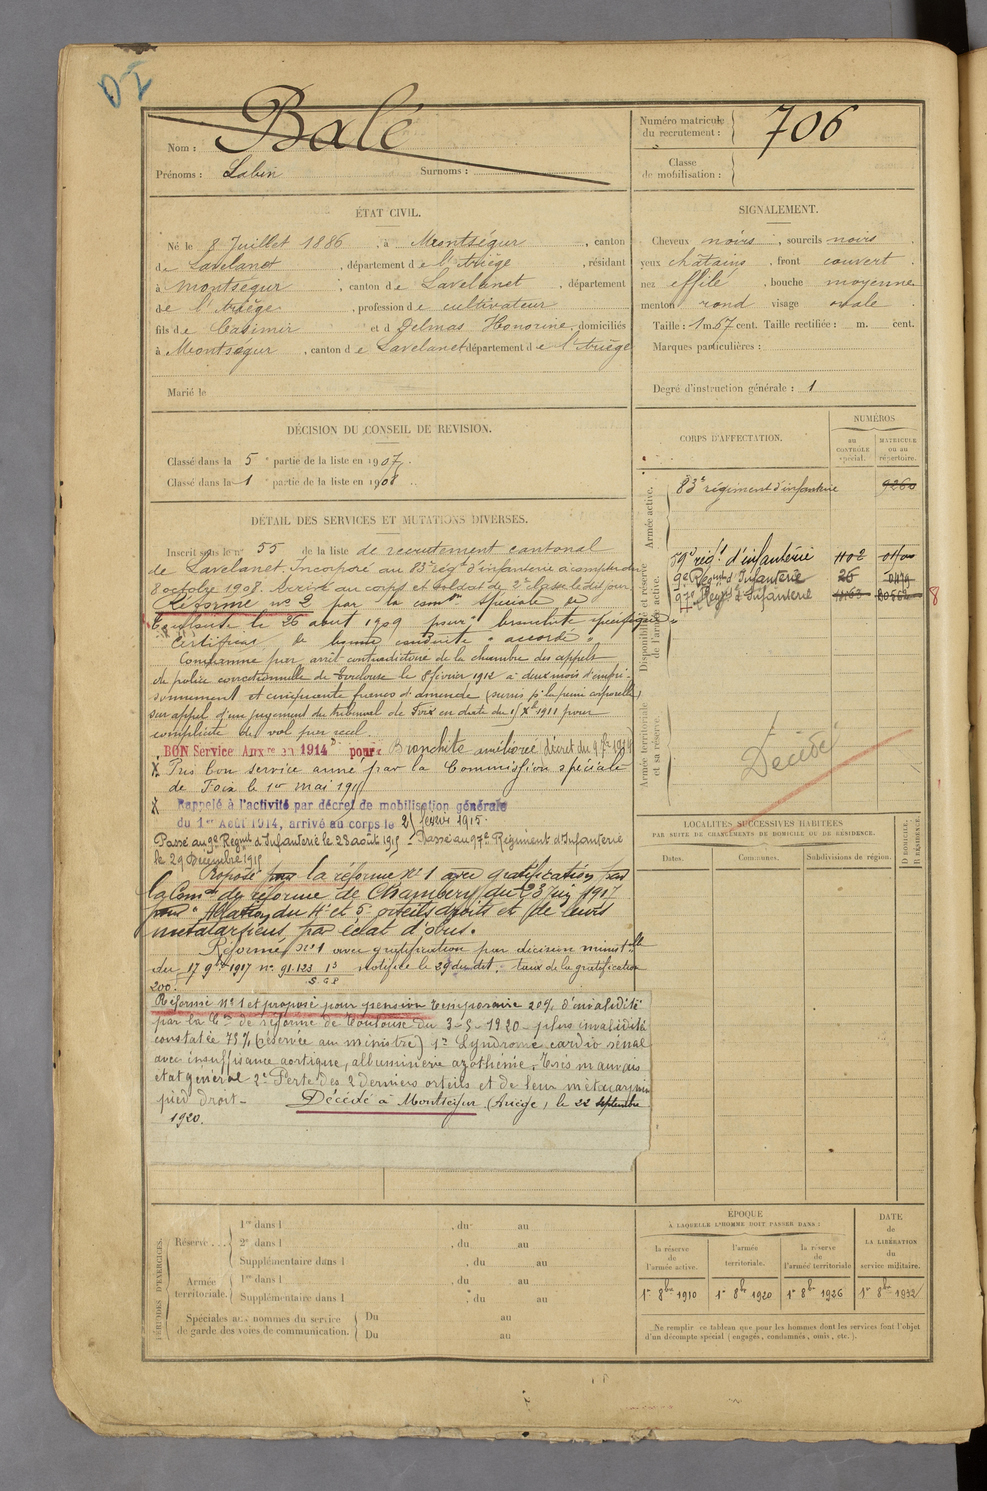 Balé
Nom :
Prénoms : Sabin Surnoms :
Numéro matricule du recrutement : 706
Classe de mobilisation :
ÉTAT CIVIL.
Né le 8 Juillet 1886, à Montségur, canton
de Lavelanet, département de l'Ariège, résidant
à Montségur, canton de Lavelanet, département
de l'Ariège, profession de cultivateur
fils de Casimir et d Delmas Honorine, domiciliés
à Montségur, canton de Lavelanet département de l'Ariège
Marié le
SIGNALEMENT.
Cheveux noirs, sourcils noirs
yeux châtains, front couvert
nez effilé, bouche moyenne
menton rond visage ovale
Taille : 1 m. 67 cent. Taille rectifiée : m. cent.
Marques particulières :
Degré d'instruction générale : 1
DÉCISION DU CONSEIL DE REVISION.
Classé dans la 5e partie de la liste en 1907.
Classé dans la 1 e partie de la liste en 1908.
DÉTAIL DES SERVICES ET MUTATIONS DIVERSES.
Inscrit sous le no 55 de la liste de recrutement cantonal
de Lavelanet. Incorporé au 83e régt d'infanterie à compter du
8 octobre 1908. Arrivé au corps et soldat de 2e classe le dit jour.
Réformé no 2 par la comon spéciale de
Toulouse le 26 août 1909 pour bronchite spécifique
Certificat de bonne conduite "accordé"
Condamné par arrêt contradictoire de la chambre des appels
de police correctionnelle de Toulouse le 8 février 1912 à deux mois d'empri-
sonnement et cinquante francs d'amende (sursis pr la peine corporelle)
sur appel d'un jugement du tribunal de Foix en date du Xbre 1911 pour
complicité de vol par recel.
BON Service Auxre en 1914 pour Bronchite améliorée (décret du 9 7bre 1914
X Pris bon service armé par la Commission spéciale
de Foix le 1er mai 191
X Rappelé à l'activité par décret de mobilisation générale
du 1er Août 1914, arrivé au corps le 2 février 1915.
Passé au 9e Régmt d'Infanterie le 23 août 1915 - Passé au 97e Régiment d'Infanterie
le 29 Décembre 1915
Proposé pour la réforme No 1 avec gratification par
la Comon de réforme de Chambéry du 23 Juin 1917
pour "Ablation du 4e et 5e orteils droits et de leurs
métatarsiens par éclat d'obus.
Réformé No 1 avec gratification par décision ministelle
du 17 9bre 1917 no 91.123 13 notifiée le 29 du dit. - taux de la gratification
S.G.P
200.
Réformé No 1 et proposé pour pension temporaire 20% d'invalidité
par la Con de réforme de Toulouse du 3-5-1920 - plus invalidité
constatée 75% (réservée au ministre) 1o Syndrome cardio rénal
avec insuffisance aortique, albuminurie azothémie. Très mauvais
état général 2o Perte des 2 derniers orteils et de leur métatarsien
pied droit - Décédé à Montségur (Ariège) le 22 septembre
1920.
CORPS D'AFFECTATION.
NUMÉROS
au CONTROLE spécial.
MATRICULE ou au répertoire.
Armée active.
83e régiment d'infanterie 9260
Disponibilité et réserve de l'armée active.
59e régt d'infanterie 1102
9e Régmt d'Infanterie 26
97e Régmt d'Infanterie 1163
Armée territoriale et sa réserve.
Décédé
LOCALITÉS SUCCESSIVES HABITÉES
PAR SUITE DE CHANGEMENTS DE DOMICILE OU DE RÉSIDENCE.
Dates. Communes. Subdivisions de région. D DOMICILE. R RÉSIDENCE.
PÉRIODES D'EXERCICES.
Réserve . . . 1re dans l , du au
2e dans l , du au
Supplémentaire dans l , du au
Armée territoriale. 1re dans l , du au
Supplémentaire dans l , du au
Spéciales aux hommes du service de garde des voies de communication. Du au
Du au
ÉPOQUE
À LAQUELLE L'HOMME DOIT PASSER DANS :
la réserve de l'armée active. l'armée territoriale. la réserve de l'armée territoriale
DATE de LA LIBÉRATION du service militaire.
1er 8bre 1910 1er 8bre 1920 1er 8bre 1926 1er 8bre 1932
Ne remplir ce tableau que pour les hommes dont les services font l'objet
d'un décompte spécial (engagés, condamnés, omis, etc.).